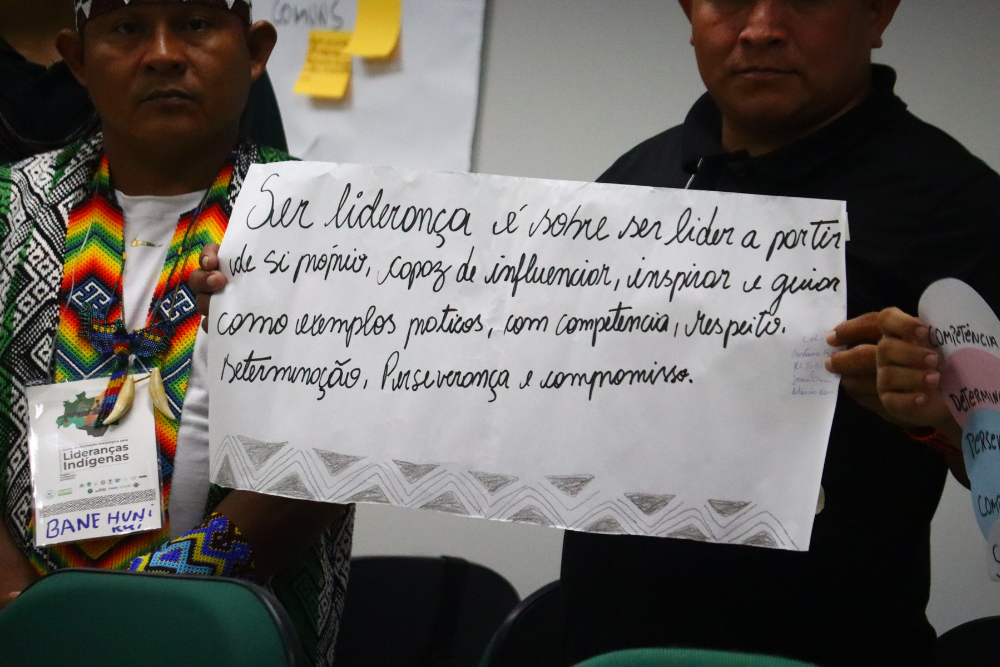 COMUNS
Ser liderança é sobre ser lider a partir
de si próprio, capaz de influenciar, inspirar e guiar
como exemplos praticos, com competência, respeito.
Determinação, Perseverança e compromisso.
Lideranças
Indígenas
BANE HUNI
KUI
COMPETÊNCIA
DETERMIN
PERSEV
COM